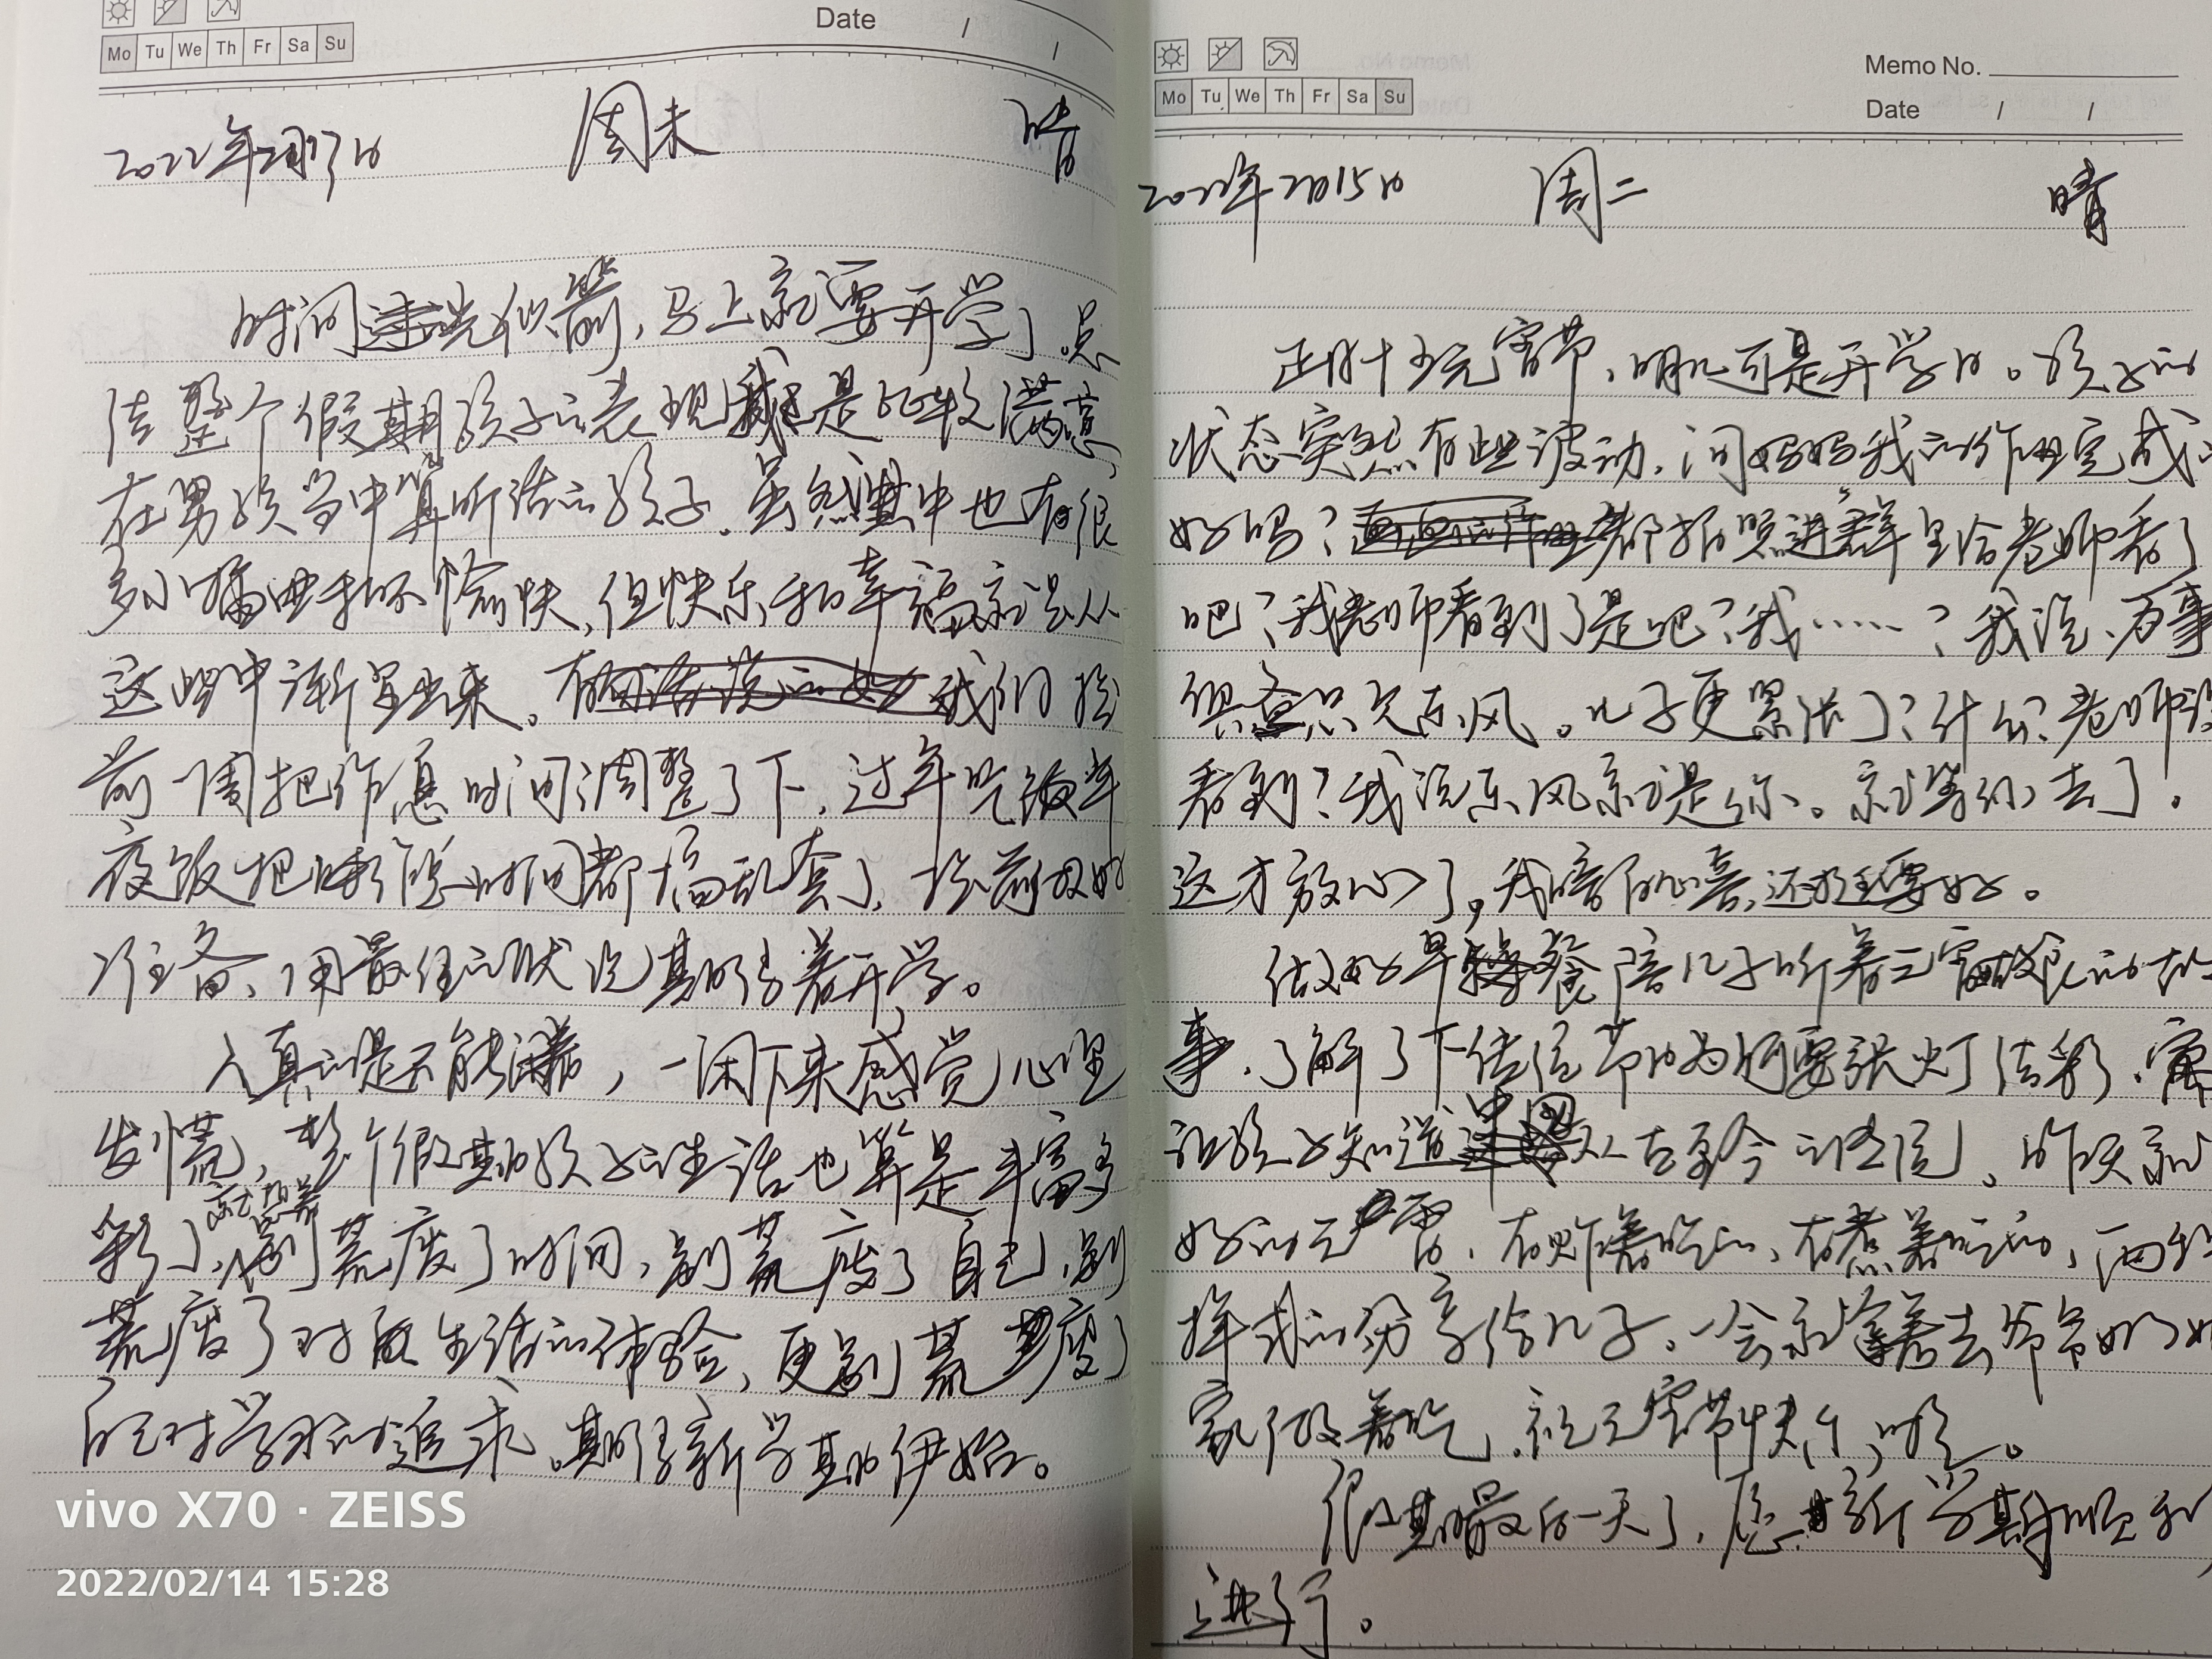 Mo Tu We Th Fr Sa Su
Date / /
2022年2月13日 周末 晴
时间光似箭,马上就要开学了。总
结整个假期孩子的表现我还是比较满意,
在男孩当中算听话的孩子。虽然其中也有很
多小插曲和不愉快,但快乐和幸福就是从
这些中渐显出来。我们提
前一周把作息时间调整了下,过年吃年
夜饭把时间都搞乱套了,提前做好
准备,用最佳的状况期待着开学。
人真的是不能闲着,一闲下来感觉心里
发慌,整个假期孩子的生活也算是丰富多
彩了,别荒废了时间,别荒废了自己,别
荒废了对生活的体验,更别荒废了
自己对学习的追求。期待新学期伊始。
vivo X70 · ZEISS
2022/02/14 15:28
Mo Tu We Th Fr Sa Su
Memo No.
Date / /
2022年2月15日 周二 晴
正月十五元宵节,明儿可是开学日。孩子的
状态突然有些波动,问妈妈我的作业完成
好吗?都拍照进群里给老师看了
吧?我老师看到了是吧?我……?我说,万事
俱备只欠东风。儿子更紧张了?什么?老师没
看到?我说东风就是你。就等你去了。
这才放心了,我暗自心喜,还挺要好。
做好早餐陪儿子听着元宵的故
事,了解了下传统节日为何要张灯结彩,
让孩子知道中国从古至今的传统,昨天就
好的元宵,有炸着吃的,有煮着吃的,两种
样式的分享给儿子。一会就拿着去爷爷奶奶
家煮着吃,祝元宵节快乐,
假期最后一天了,愿新学期顺利
进行。